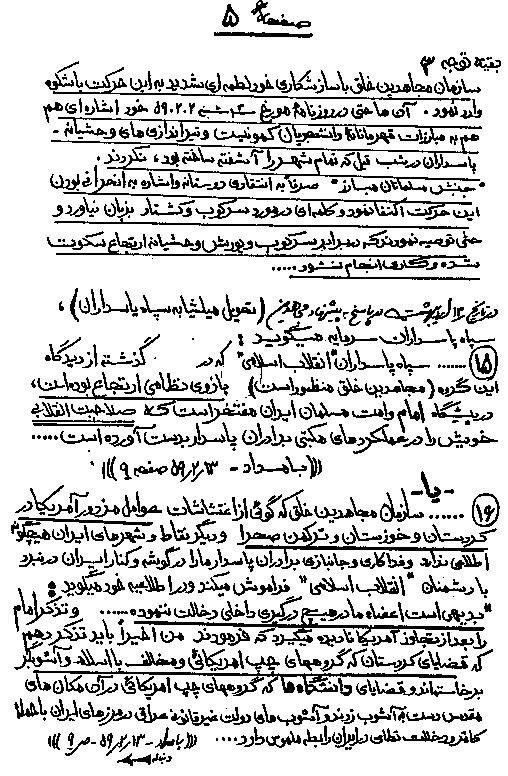 صفحه ۵
بقیه توجه ۳
سازمان مجاهدین خلق با سازشکاری خود لطمه ای شدید به این حرکت باشکوه
وارد نمود. آن ها حتی در روزنامهٔ مورخ ۵۹،۲،۲ خود اشاره ای هم
هم به مبارزات قهرمانانهٔ دانشجویان کمونیست و تیراندازی های وحشیانه -
پاسداران در شب قبل که تمام شهر را آشفته ساخته بود، نکردند.
"جنبش مسلمانان مبارز" صرفاً به انتقادی دوستانه و اشاره به انحرافی بودن
این حرکت اکتفا نمود و کلمه ای در مورد سرکوب و کشتار بزبان نیاورد و
حتی توصیه نمودند که در برابر سرکوب و یورش وحشیانه ارتجاع سکوت
شده و کاری انجام نشود.....
در تاریخ ۱۲ اردیبهشت در پاسخ به پیشنهاد مجاهدین (تحویل میلیشیا به سپاه پاسداران)،
سپاه پاسداران سرمایه میگوید:
(۱۵) ...... سپاه پاسداران "انقلاب اسلامی" که در گذشته از دیدگاه
این گروه (مجاهدین خلق منظور است) بازوی نظامی ارتجاع بوده است،
در پیشگاه امام و امت مسلمان ایران مفتخر است که صلاحیت انقلابی
خویش را در عملکردهای مکتبی برادران پاسدار بدست آورده است.....
(((بامداد - ۵۹،۲،۱۳ صفحه ۹)))
- یا -
(۱۶) ...... سازمان مجاهدین خلق که گوئی از اغتشاشات عوامل مزدور آمریکا در
کردستان و خوزستان و ترکمن صحرا و دیگر نقاط و شهرهای ایران هیچگونه
اطلاعی ندارد و فداکاری و جانبازی برادران پاسدار ما را در گوشه و کنار ایران در نبرد
با دشمنان "انقلاب اسلامی" فراموش میکند و در اطلاعیه خود میگوید:
"بدیهی است اعضاء ما در هیچ درگیری داخلی دخالت ننموده...... و تذکر امام
را بعد از تجاوز آمریکا نادیده میگیرد که فرمودند من اخیراً باید تذکر دهم
که قضایای کردستان که گروههای چپ امریکائی و مخالف با اسلام و آشوبگر
برخاسته اند و قضایای دانشگاه ها که گروههای چپ امریکائی در آن مکان های
مقدس دست به آشوب زدند و آشوب های دولت غیر قانونی عراق در مرزهای ایران با حمله
کامترو دخالت نظامی در ایران رابطه ملموس دارد.... (((بامداد - ۵۹،۲،۱۳ - ص ۹)))
دنباله